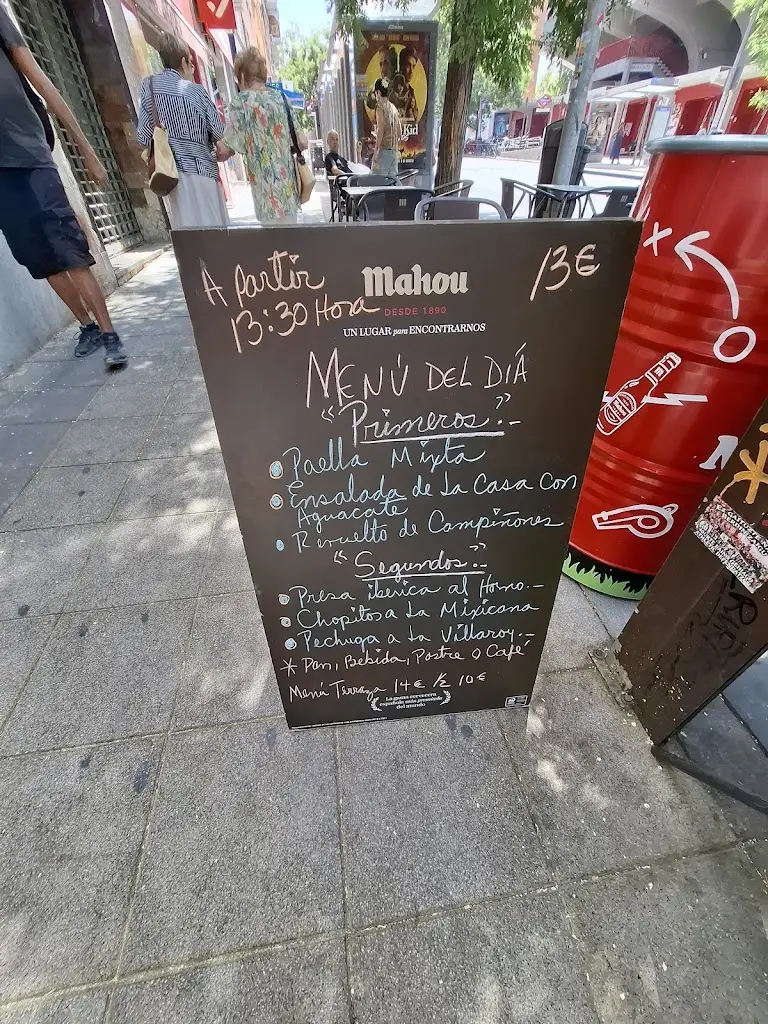 A partir
13:30 Hora
Mahou
DESDE 1890
UN LUGAR para ENCONTRARNOS
13€
MENÚ DEL DÍA
"Primeros".-
Paella Mixta
Ensalada de La Casa Con
Aguacate
Revuelto de Campiñones
"Segundos".-
Presa iberica al Horno.-
Chopitos a La Mixicana
Pechuga a La Villaroy.-
* Pan, Bebida, Postre o Café
Menú Terraza 14€ 1/2 10€
La gama cervecera
española más premiada
del mundo
Kid